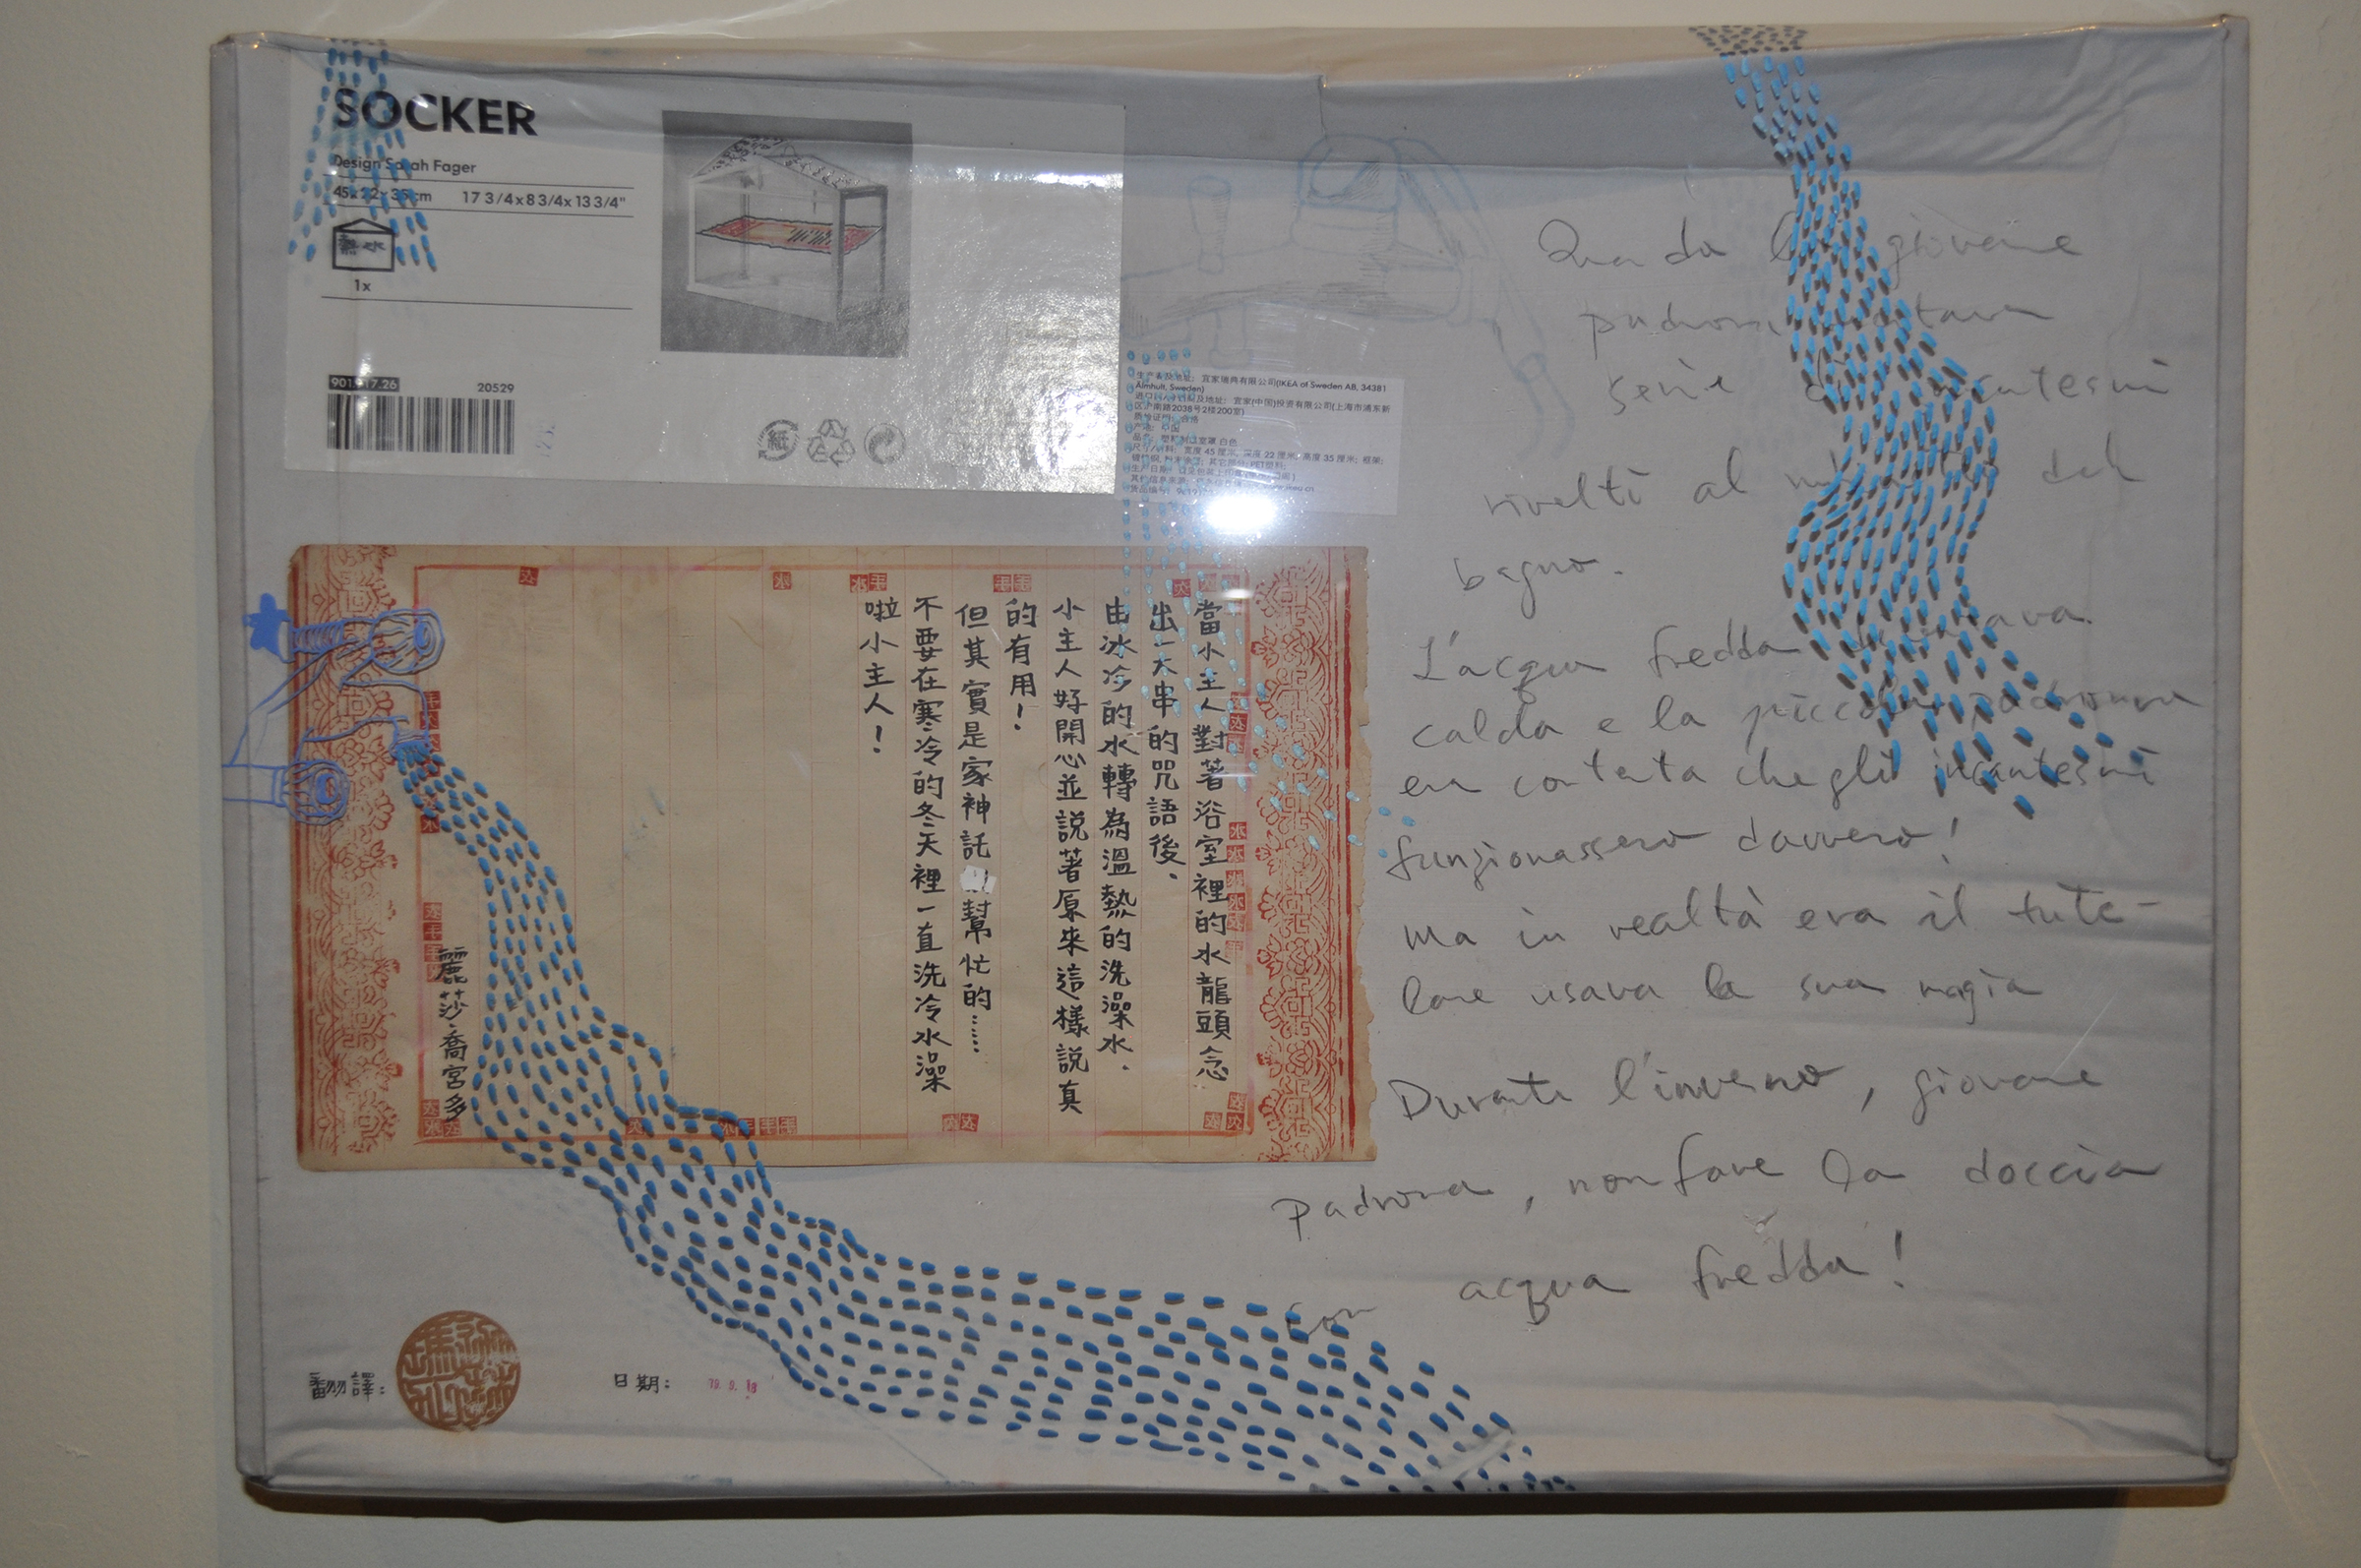 SOCKER
Design Sarah Fager
45x22x35cm 17 3/4x8 3/4x13 3/4"
熱水
1x
20529
紙
生产者及地址: 宜家瑞典有限公司(IKEA of Sweden AB, 34381
Älmhult, Sweden)
宜家(中国)投资有限公司(上海市浦东新
2038号2楼200室)
合格
中国
白色
宽度 45 厘米, 深度 22 厘米, 高度 35 厘米; 框架:
當小主人對著浴室裡的水龍頭念
出一大串的咒語後、
由冰冷的水轉為溫熱的洗澡水.
小主人好開心並說著原來這樣說真
的有用!
但其實是家神託 幫忙的……
不要在寒冷的冬天裡一直洗冷水澡
啦小主人!
麗莎·喬宮多
Quando la giovane
padrona
serie di incantesimi
rivolti al del
bagno.
L'acqua fredda diventava
calda e la piccola padrona
era contenta che gli incantesimi
funzionassero davvero!
ma in realtà era il tute-
lare usava la sua magia
Durante l'inverno, giovane
padrona, non fare la doccia
con acqua fredda!
翻譯:
日期: 19. 9. 18